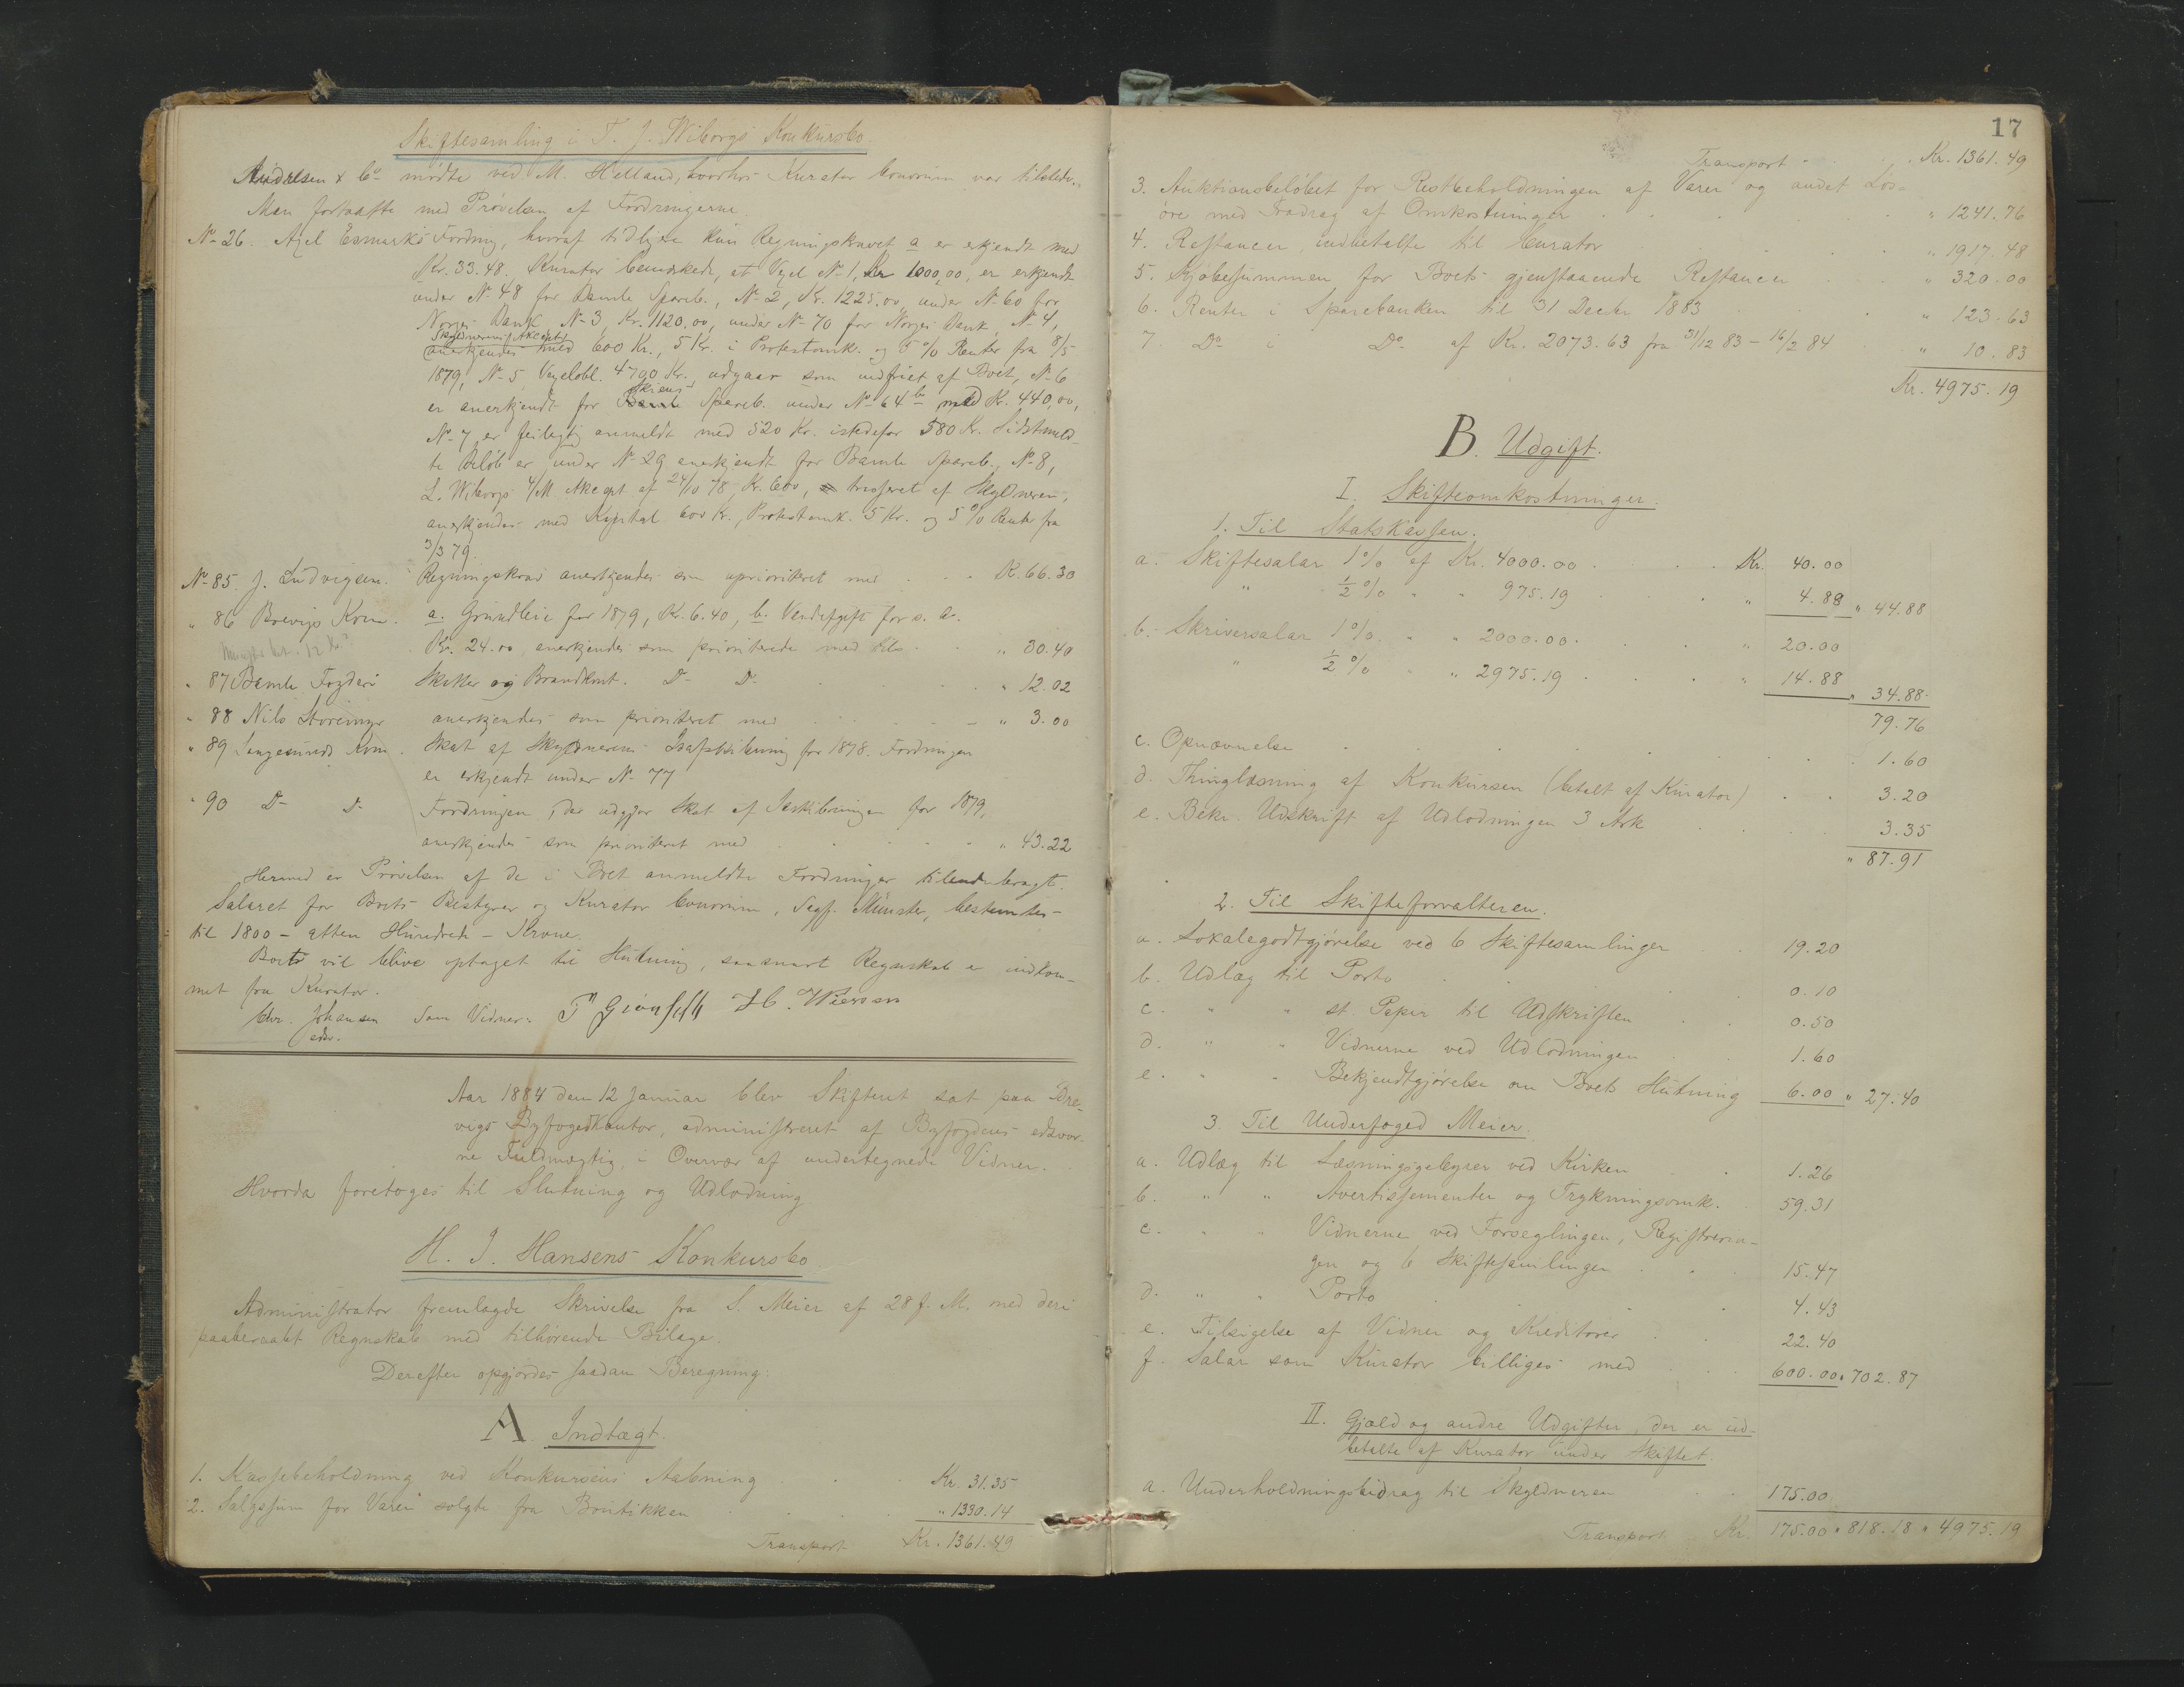 Skiftesamling i T. J. Wiborgs Konkursbo.
Andresen & Co mødte ved M. Helland, hvorhos Kurator bonorum var tilstede.
Man fortsatte med Prøvelsen af Fordringerne.
No 26. Axel Esmarks Fordring, hvoraf tidligere kun Regningskravet a er erkjendt med
Kr. 33.48. Kurator bemærkede, at Vexel No 1, Kr 1000,00, er erkjendt
under No 48 for Bamle Spareb., No 2, Kr. 1225.00, under No 60 for
Norges Bank, No 3, Kr. 1120.00, under No 70 for Norges Bank, No 4,
Skyldnerens Akcept
anerkjendes med 600 Kr., 5 Kr. i Protestomk. og 5 % Renter fra 8/5
1879, No 5, Vexelobl. 4790 Kr., udgaar som indfriet af Boet, No 6
Skiens
er anerkjendt for Bamle Spareb. under No 64 b med Kr. 440,00,
No 7 er feilagtig anmeldt med 520 Kr. istedefor 580 Kr. Sidstmeld-
te Beløb er under No 29 anerkjendt for Bamle Spareb., No 8,
L. Wiborgs 4/M Akcept af 24/10 78, Kr. 600, trasseret af Skyldneren,
anerkjendes med Kapital 600 Kr., Protestomk. 5 Kr. og 5 % Renter fra
3/3 79.
No 85. J. Ludvigsen. Regningskrav anerkjendes som uprioriteret med . . K. 66.30
" 86 Brevigs Kom. a. Grundleie for 1879, Kr. 6.40, b. Vandafgift for s. A.
Kr. 24.00, anerkjendes som prioriterede med tils. . " 30.40
" 87 Bamle Fogderi Skatter og Brandkont. Do Do . . " 12.02
" 88 Nils Storemyr anerkjendes som prioriteret med . . " 3.00
" 89 Langesunds Kom. Skat af Skyldnerens Isafskibning for 1878. Fordringen
er erkjendt under No 77
" 90 Do Do Fordringen, der udgjør Skat af Isskibningen for 1879,
anerkjendes som prioriteret med . . " 43.22
Hermed er Prøvelsen af de i Boet anmeldte Fordringer tilendebragt.
Salæret for Boets Bestyrer og Kurator bonorum, Sagf. Münster, bestemtes
til 1800 – atten Hundrede – Krone.
Boet vil blive optaget til Slutning, saasnart Regnskab er indkom-
met fra Kurator.
Chr. Johansen Som Vidner:
edsv.
Aar 1884 den 12 Januar blev Skifteret sat paa Bre-
vigs Byfogedkontor, administreret af Byfogdens edsvor-
ne Fuldmægtig, i Overvær af undertegnede Vidner.
Hvorda foretoges til Slutning og Udlodning
H. J. Hansens Konkursbo
Administrator fremlagde Skrivelse fra S. Meier af 28 f. M. med deri
paaberaabt Regnskab med tilhørende Bilage.
Derefter opgjordes saadan Beregning:
A. Indtægt.
1. Kassebeholdning ved Konkursens Aabning . Kr. 31.35
2. Salgssum for Varer solgte fra Boutikken . . . " 1330.14
Transport Kr. 1361.49
17
Transport . . . Kr. 1361.49
3. Auktionsbeløbet for Restbeholdningen af Varer og andet Løs-
øre med Fradrag af Omkostninger . . . " 1241.76
4. Restancer indbetalte til Curator . . . " 1917.48
5. Kjøbesummen for Boets gjenstaaende Restancer . . " 320.00
6. Renter i Sparebanken til 31 Decbr 1883 . . . " 123.63
7. Do i Do af Kr. 2073.63 fra 31/12 83 – 16/2 84 . " 10.83
Kr. 4975.19
B. Udgift.
I. Skifteomkostninger.
1. Til Statskassen.
a. Skiftesalær 1 % af Kr. 4000.00 . . . Kr. 40.00
" 1/2 % " " 975.19 . . " 4.88 " 44.88
b. Skriversalær 1 % " " 2000.00. . . " 20.00
" 1/2 % " " 2975.19 . . " 14.88 " 34.88
79.76
c. Opnævnelse . . . 1.60
d. Thinglæsning af Konkursen (betalt af Kurator) . . 3.20
e. Bekr. Udskrift af Udlodningen 3 Ark . . 3.35
" 87.91
2. Til Skifteforvalteren.
a. Lokalegodtgjørelse ved 6 Skiftesamlinger . 19.20
b. Udlæg til Porto . . . 0.10
c. " " st. Papir til Udskriften . . 0.50
d. " " Vidnerne ved Udlodningen . . 1.60
e. " " Bekjendtgjørelse om Boets Slutning 6.00 " 27.40
3. Til Underfoged Meier.
a. Udlæg til Læsningsgebyrer ved Kirken . . 1.26
b. " " Avertissementer og Trykningsomk. 59.31
c. " " Vidnerne ved Forseglingen, Registrerin-
gen og 6 Skiftesamlinger . . 15.47
d. " " Porto . . . 4.43
e. Tilsigelse af Vidner og Kreditorer . . 22.40
f. Salær som Kurator billiges med . . 600.00 " 702.87
II. Gjæld og andre Udgifter, der er ud-
betalte af Kurator under Skiftet.
a. Underholdningsbidrag til Skyldneren . . 175.00
Transport Kr. 175.00 " 818.18 " 4975.19